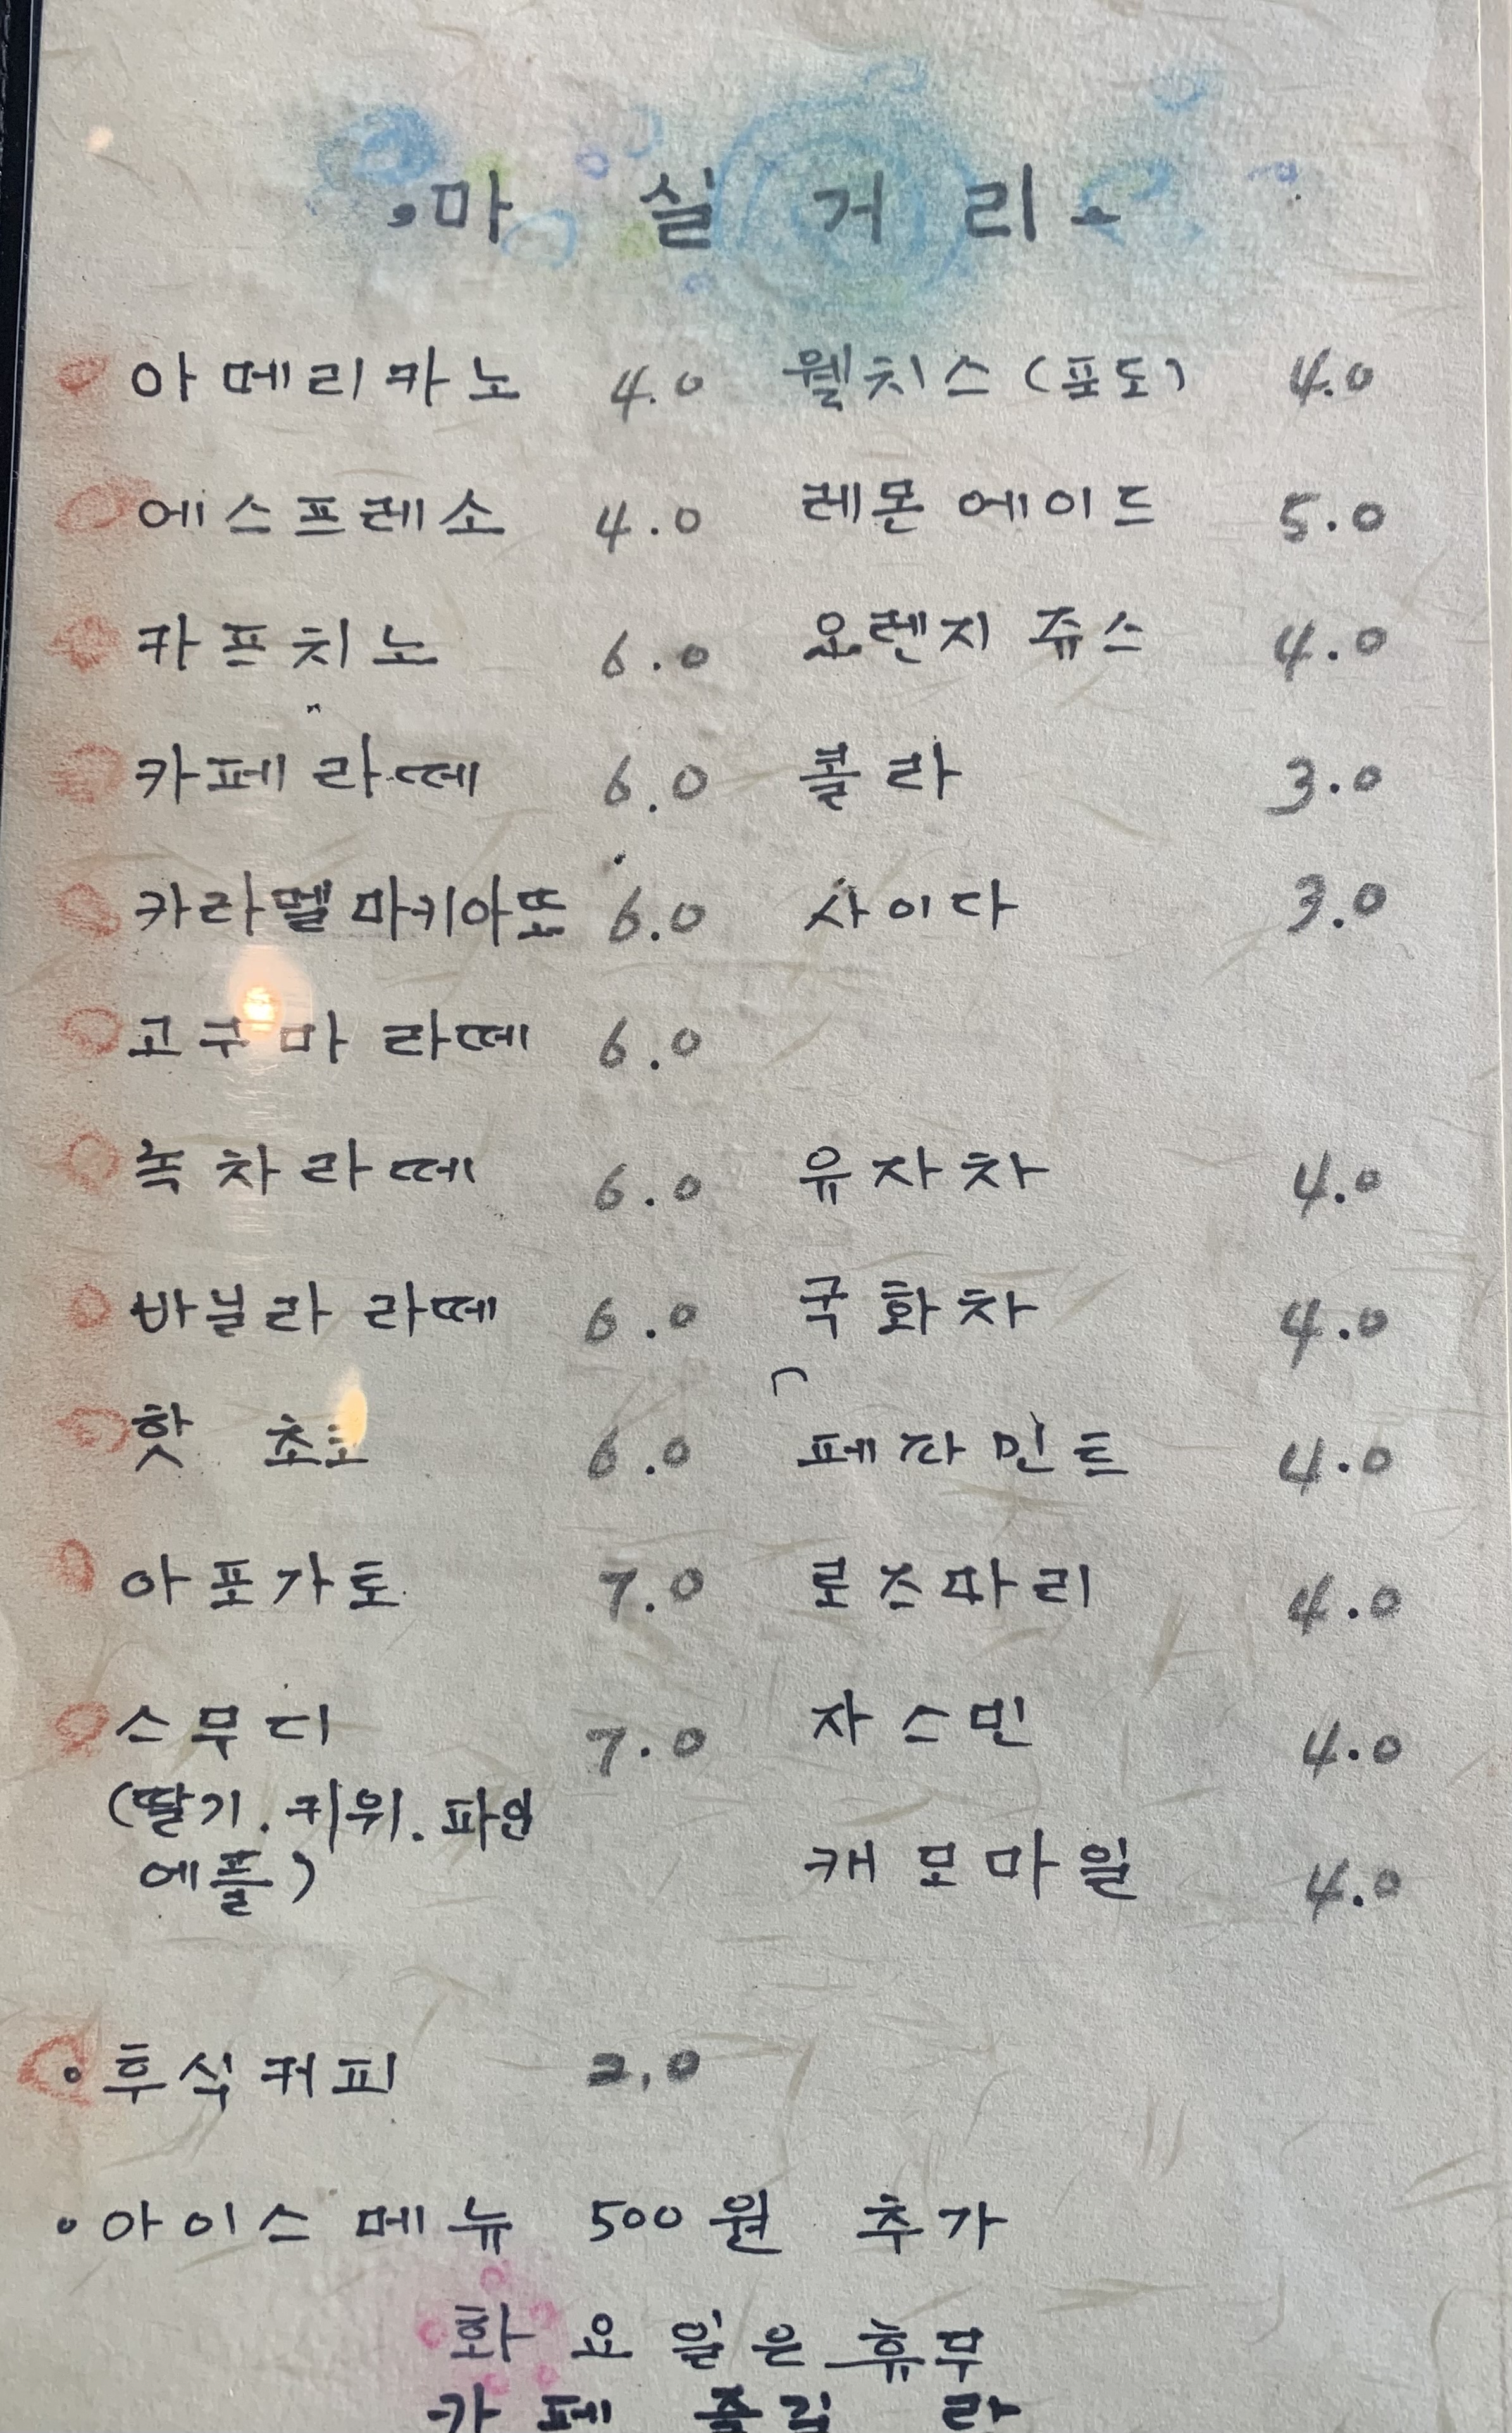 마실거리
아메리카노 4.0 웰치스(포도) 4.0
에스프레소 4.0 레몬에이드 5.0
카프치노 6.0 오렌지 쥬스 4.0
카페라떼 6.0 콜라 3.0
카라멜마키아또 6.0 사이다 3.0
고구마 라떼 6.0
녹차라떼 6.0 유자차 4.0
바닐라 라떼 6.0 국화차 4.0
핫 초코 6.0 페파민트 4.0
아포가토 7.0 로즈마리 4.0
스무디 7.0 자스민 4.0
(딸기.키위.파인
에플) 캐모마일 4.0
후식커피 2,0
아이스 메뉴 500원 추가
화요일은 휴무
카페